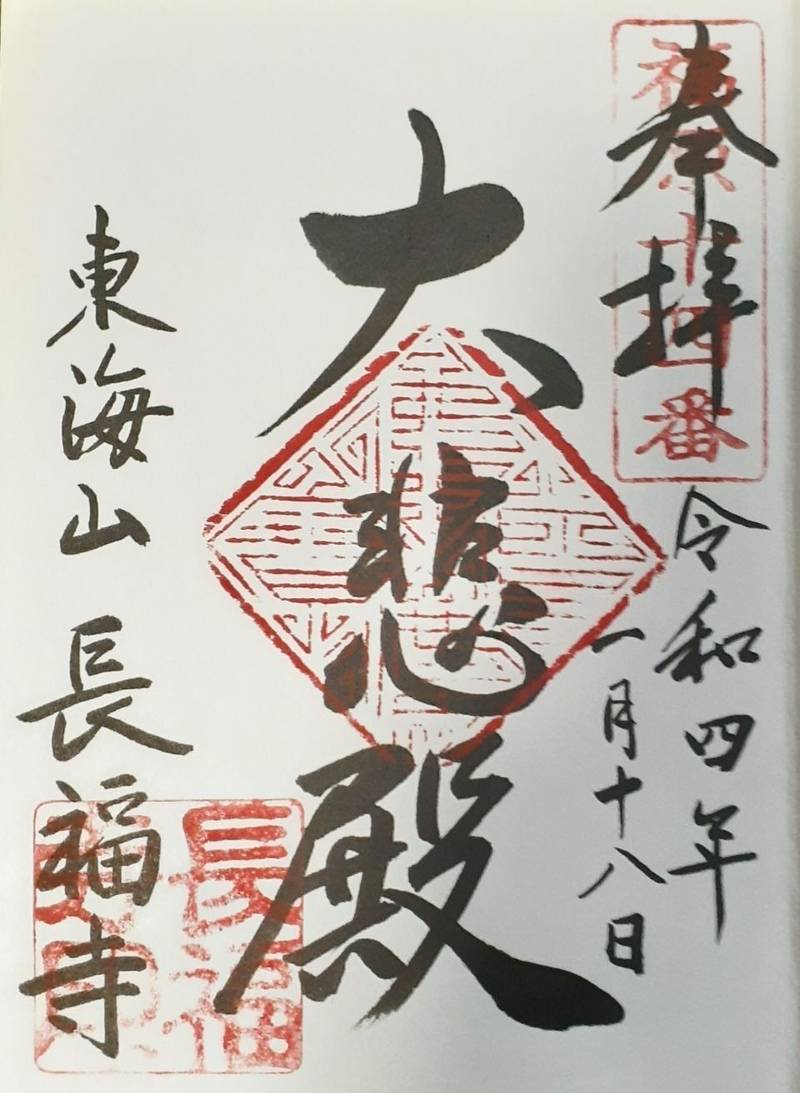 奉拝
令和四年
一月十八日
大悲殿
東海山 長福寺
長福